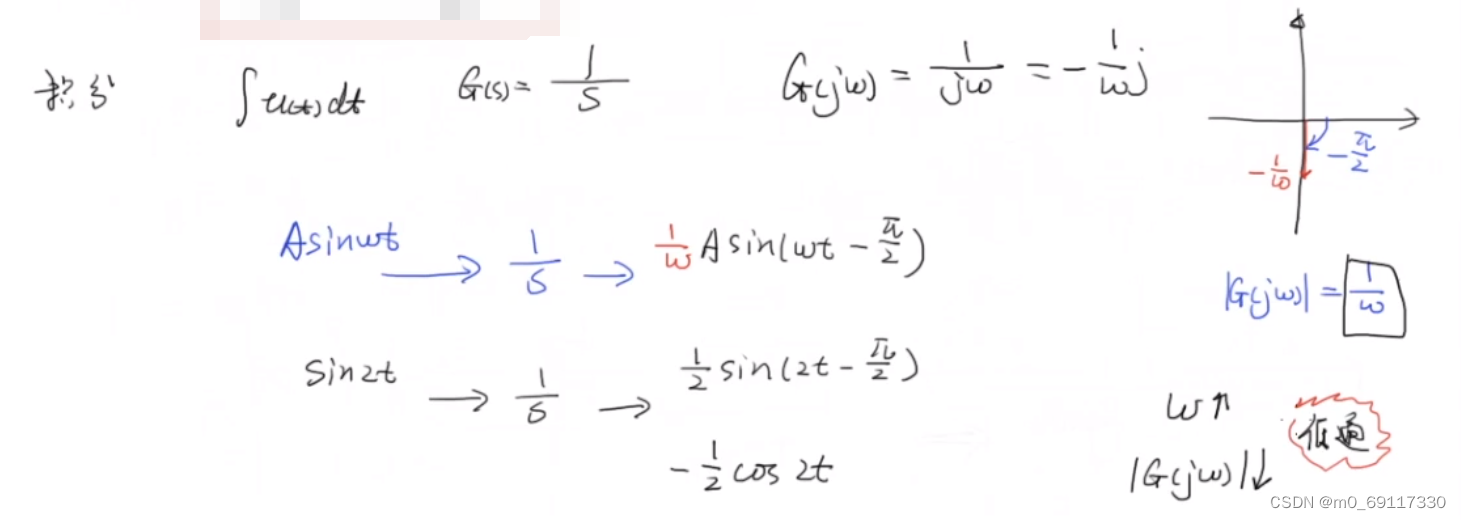 积分 ∫u(t)dt G(s)= 1/s G(jω) = 1/jω = -1/ω j
-π/2
-1/ω
Asinωt → 1/s → 1/ω A sin(ωt - π/2)
|G(jω)| = 1/ω
sin2t → 1/s → 1/2 sin(2t - π/2)
ω↑
低通
-1/2 cos 2t
|G(jω)|↓
CSDN @m0_69117330